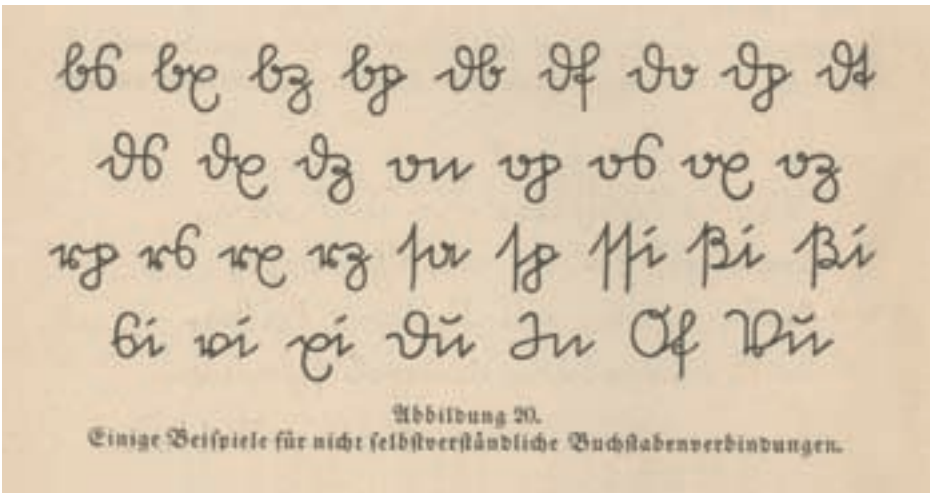 bs bx bz bp db df do dp dt
ds dx dz on op os ox oz
rp rs rx rz ſa ſp ſſi ßi ßi
si ri xi Du In Öf Wu
Abbildung 20.
Einige Beiſpiele für nicht ſelbſtverſtändliche Buchſtabenverbindungen.